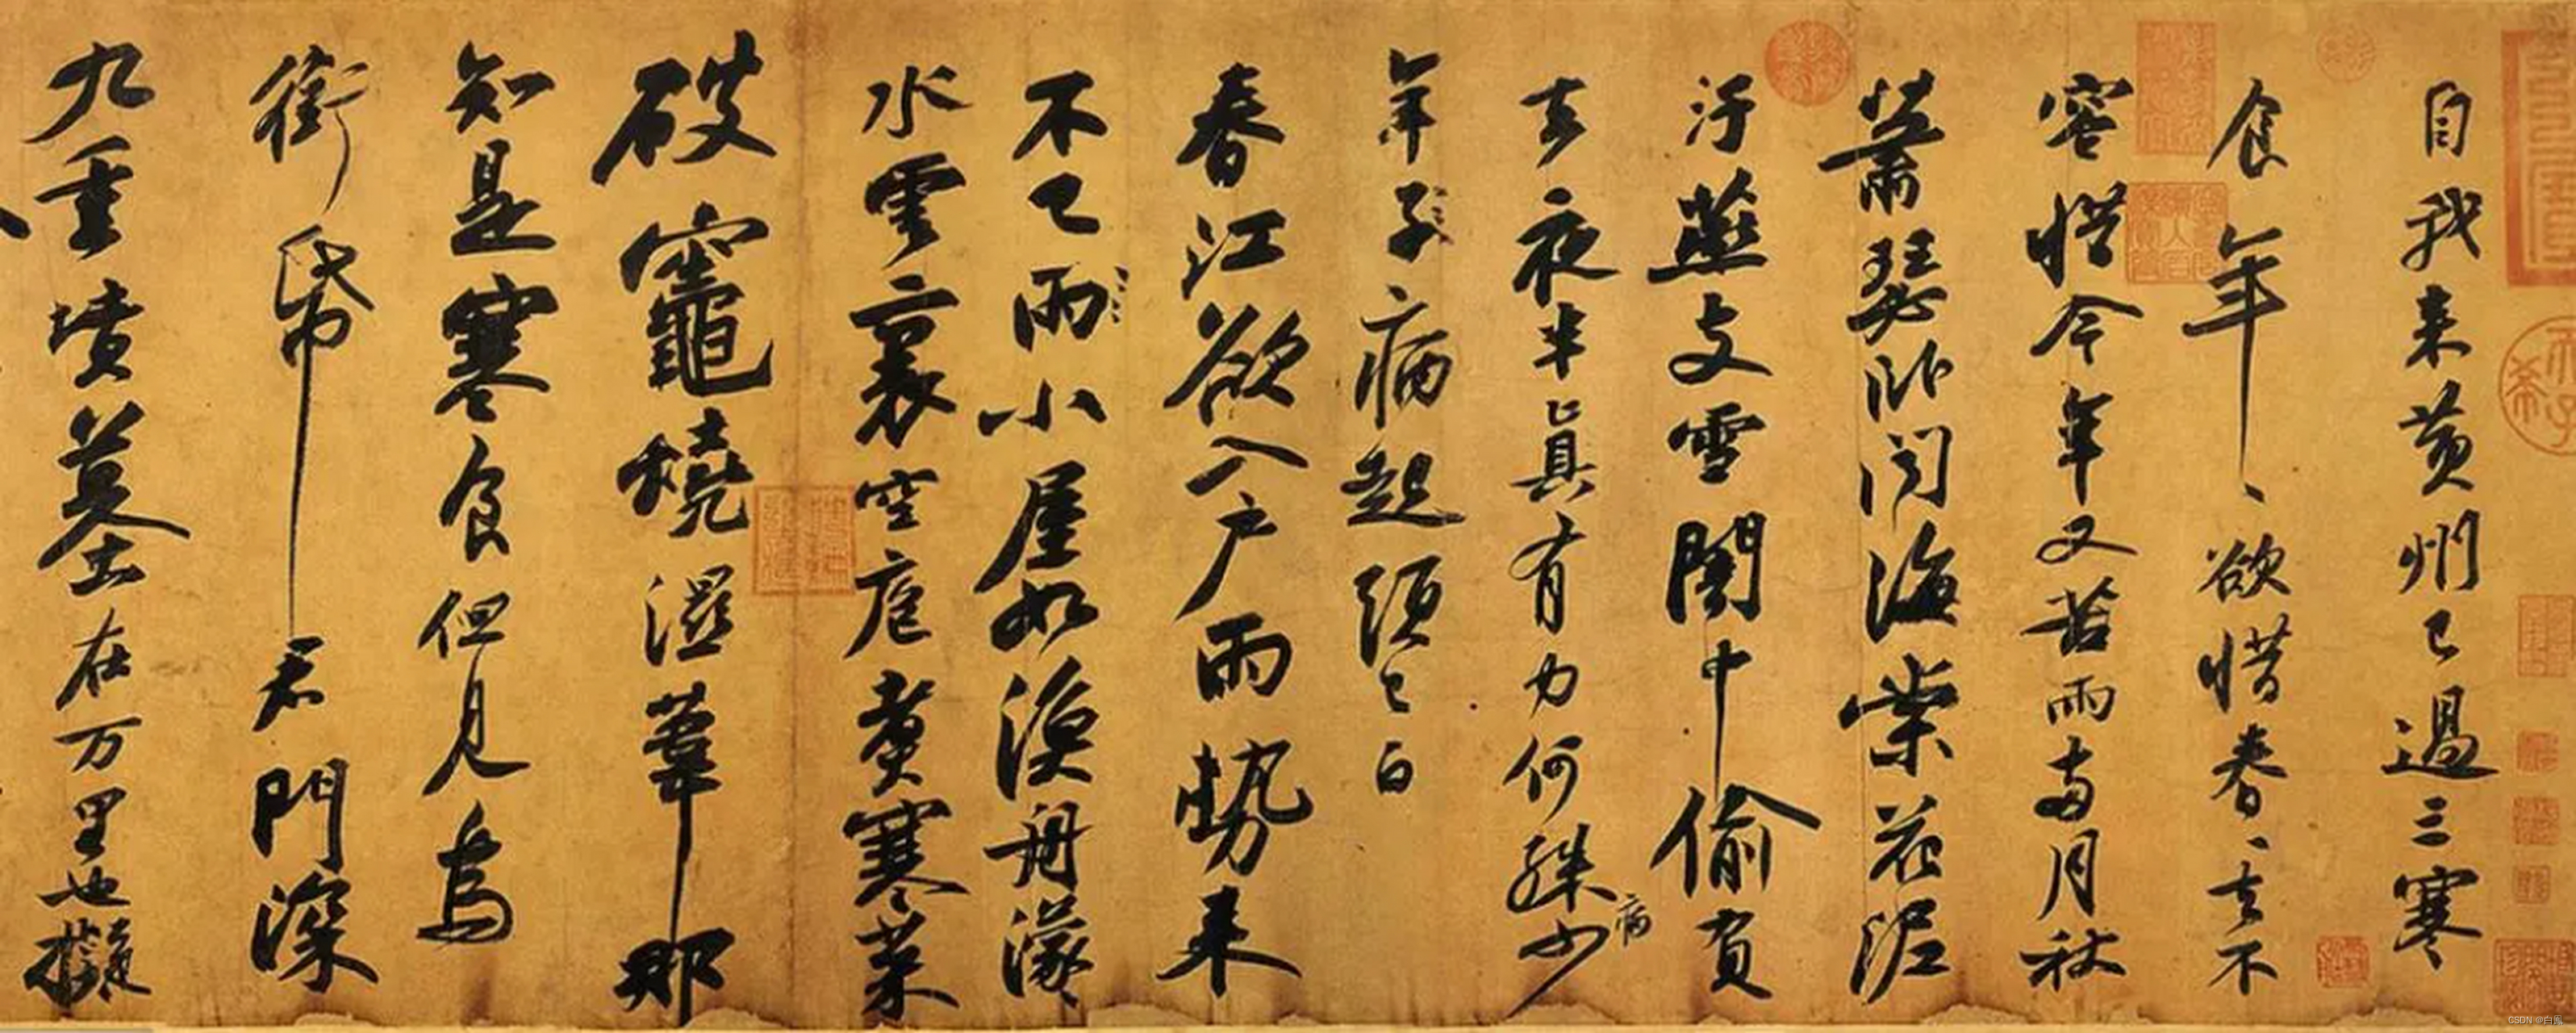 自我来黄州已過三寒
食年、欲惜春、去不
容惜今年又苦雨两月秋
蕭瑟卧聞海棠花泥
汙燕支雪闇中偷負
去夜半真有力何殊少病
年子病起頭已白
春江欲入户雨勢来
不已雨小屋如漁舟濛、
水雲裏空庖煮寒菜
破竈燒濕葦那
知是寒食但見烏
銜帋君門深
九重墳墓在万里也擬
CSDN